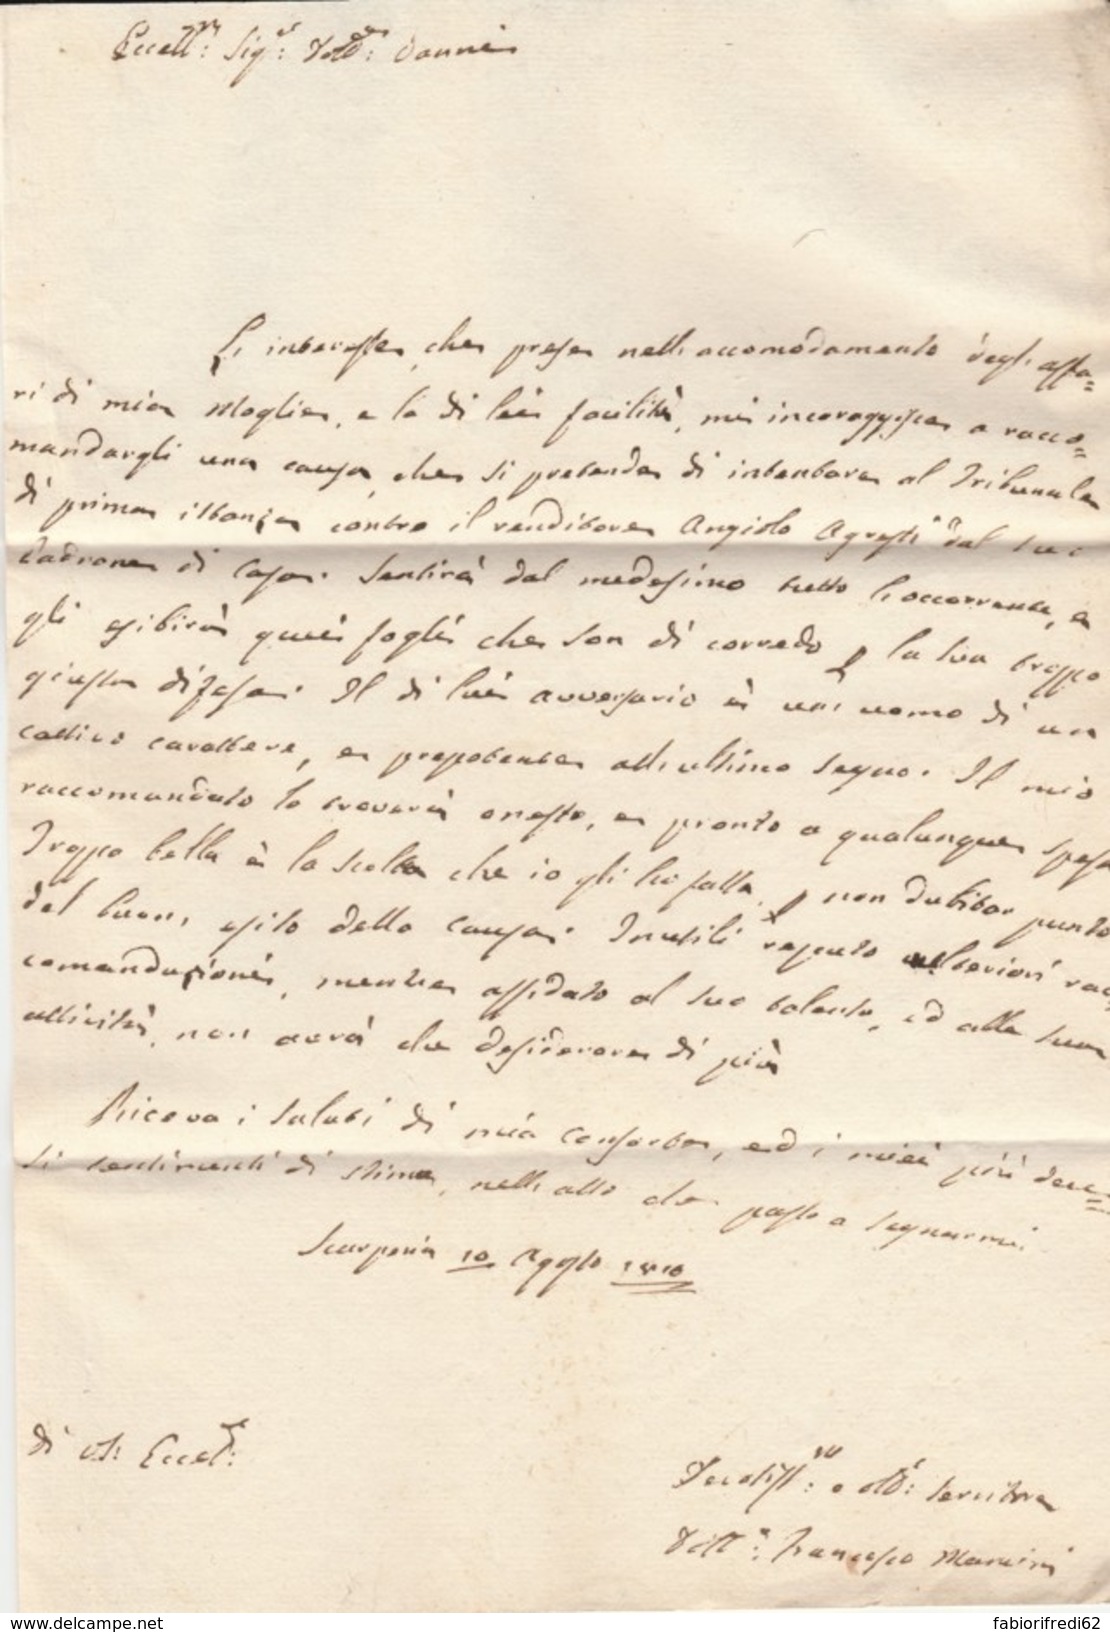 Eccell:mo Sig:re Dott:re Vannini
L'interesse, che prese nell'accomodamento degli affa=
ri di mia Moglie, e la di lei facilità, mi incoraggisce a racco=
mandargli una causa, che si pretende di intentare al Tribunale
di prima istanza contro il venditore Angiolo Agresti dal suo
Padrone di Casa. Sentirà dal medesimo tutto l'occorrente, e
gli esibirà quei fogli che son di corredo p la sua troppo
giusta difesa. Il di lui avversario è un uomo di un
cattivo carattere, e prepotente all'ultimo segno. Il mio
raccomandato lo troverà onesto, e pronto a qualunque spesa
Troppo bella è la scelta che io gli ho fatta, p non dubitar punto
del buon, esito della causa. Inutili reputo ulteriori rac=
comandazioni, mentre affidato al suo talento, ed alla sua
attività, non avrà che desiderare di più
Riceva i saluti di mia consorte, ed i miei più dece=
si sentimenti di stima, nell'atto che passo a segnarmi.
Scarperia 10 Agosto 1810
di V. Eccel:
Devotiss:mo e obb: servitore
Dott:re Francesco Mancini
www.delcampe.net
fabiorifredi62